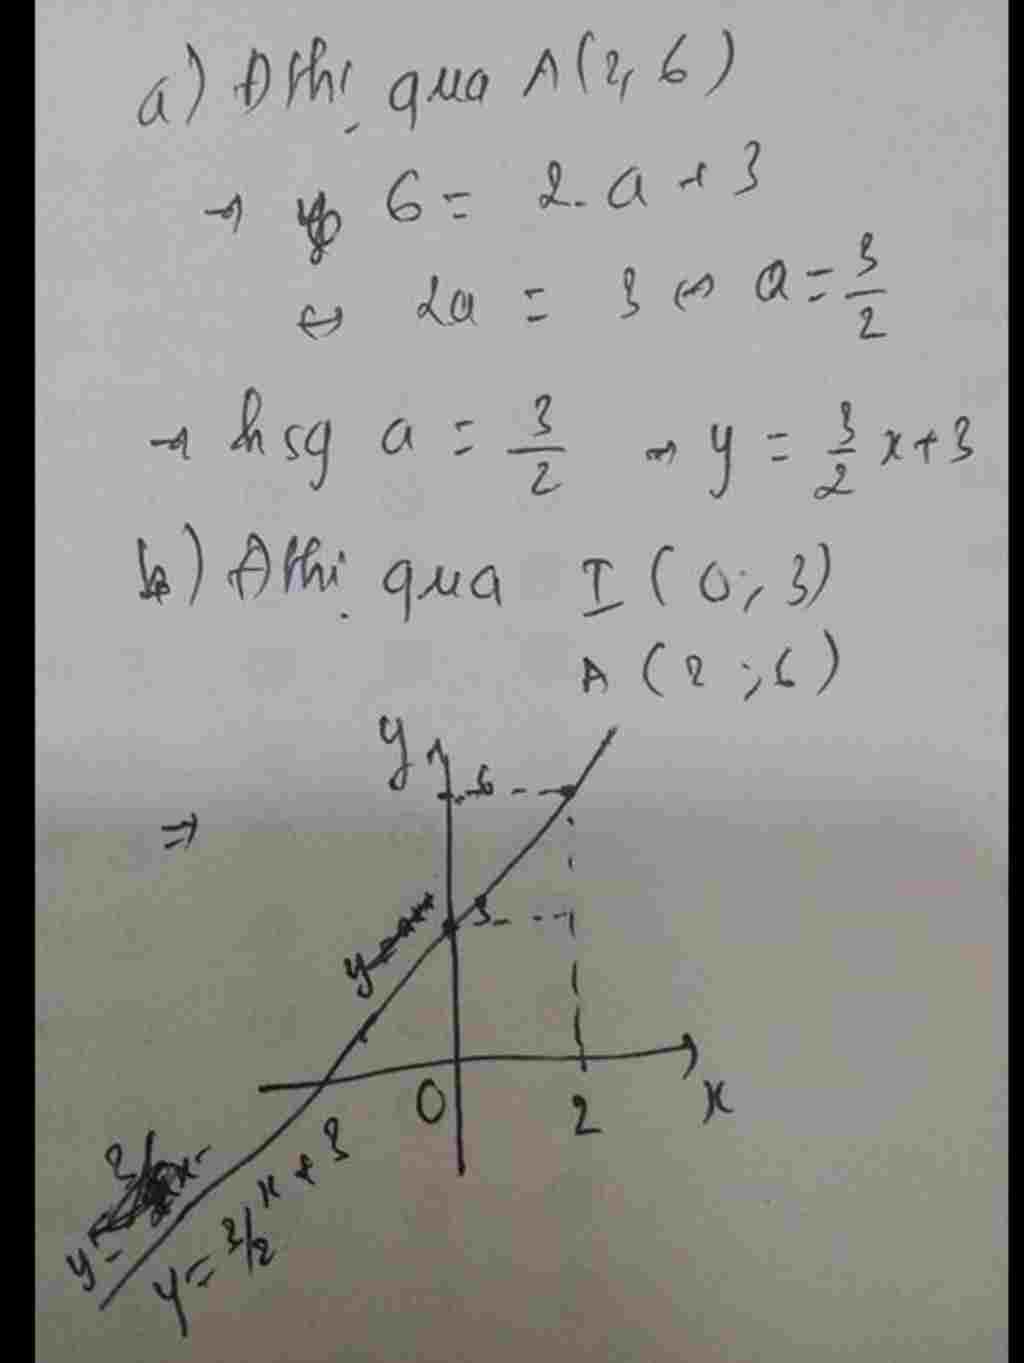 a) Đ thị qua A(2, 6)
→ 6 = 2. a + 3
⇔ 2a = 3 ⇔ a = 3/2
→ hsg a = 3/2 → y = 3/2 x + 3
b) Đ thị qua I (0; 3)
A (2; 6)
y
6
⇒
3
y =
O
2
x
y =
y = 3/2 x + 3